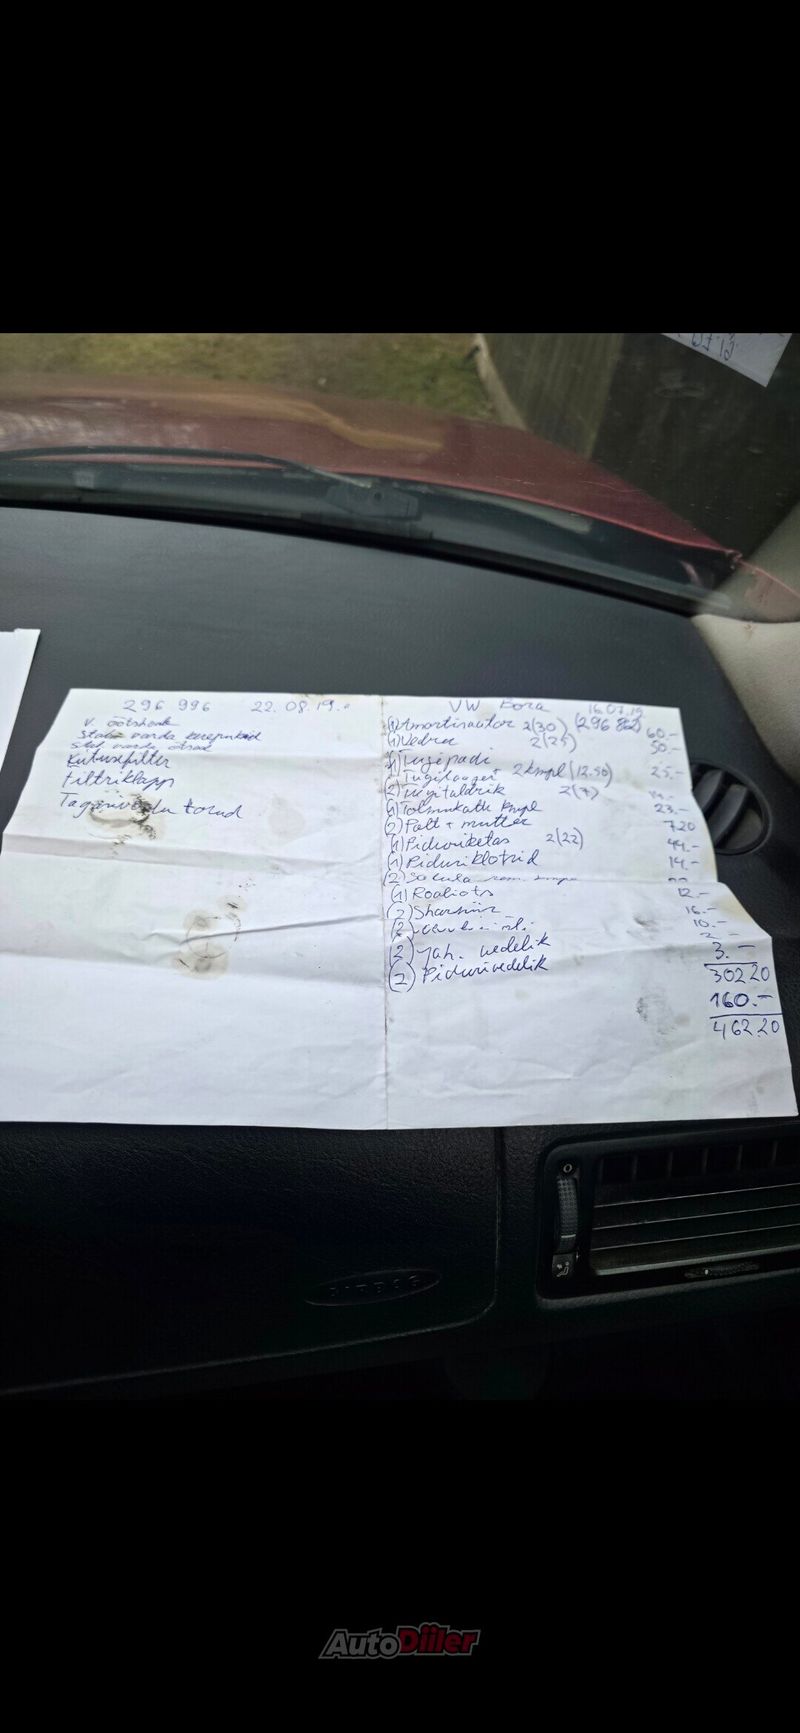 07.19
296 996 22.08.19.
V. õõtshark
Stab. varda kerepuksid
stab varda otsad
Kütusefilter
Filtriklapp
torud
VW Bora 16.07.19
(1) Amortisaator 2(30) 60.-
(1) Vedru 2(25) 50.-
(1) Tugipadi
Tugilaager 2 kmpl (12.50) 25.-
(2) Tugitaldrik 2(7)
(1) Tolmukatte kmpl 23.-
(2) Polt + mutter 7.20
(1) Piduriketas 2(22) 44.-
(1) Piduriklotsid 14.-
(2) rem.
(1) Rooliots 12.-
(2) 16.-
(2) 10.-
(2) Jah. vedelik
(2) Pidurivedelik 3.-
302.20
160.-
462.20
AIRBAG
AutoDiiler